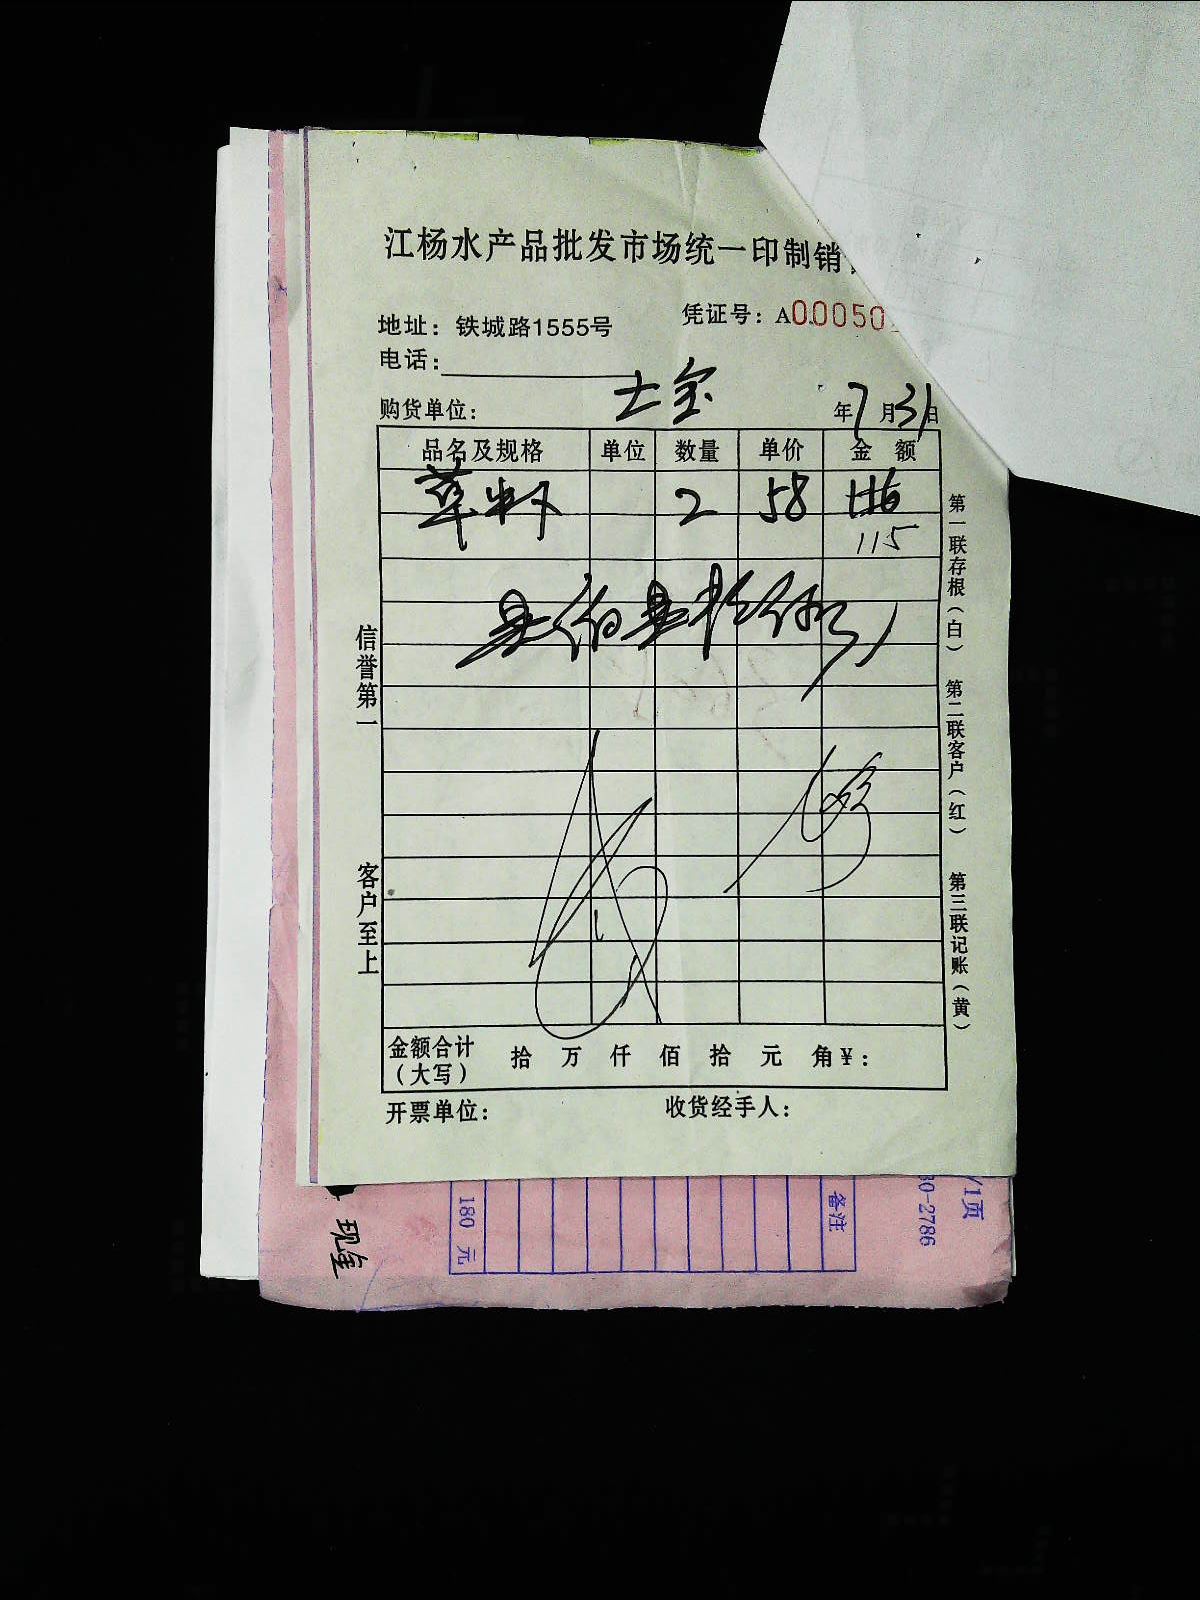 江杨水产品批发市场统一印制销
地址：铁城路1555号
凭证号：A00050
电话：
购货单位： 士宝
年7月31日
品名及规格 单位 数量 单价 金额
草虾 2 58 116
115
壹佰壹拾伍
信誉第一
客户至上
第一联存根（白）
第二联客户（红）
第三联记账（黄）
金额合计（大写） 拾 万 仟 佰 拾 元 角 ¥：
开票单位： 收货经手人：
现金
180 元
备注
0-2786
/1页